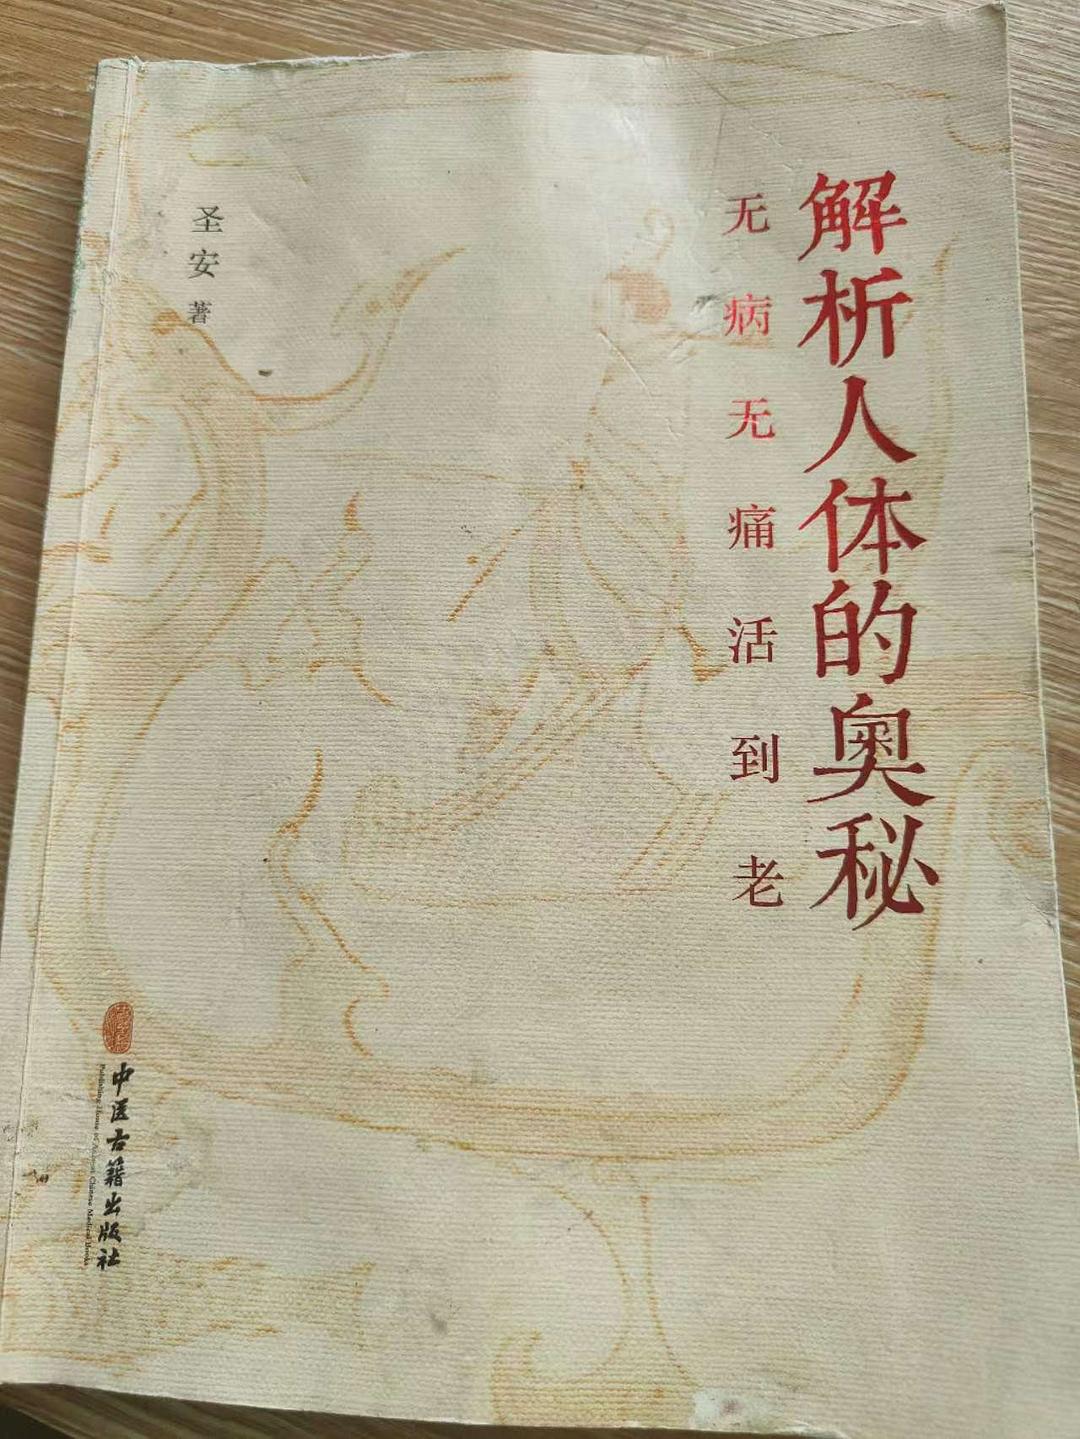 解析人体的奥秘
无病无痛活到老
圣安 著
中医古籍出版社
Publishing House of Ancient Chinese Medical Books